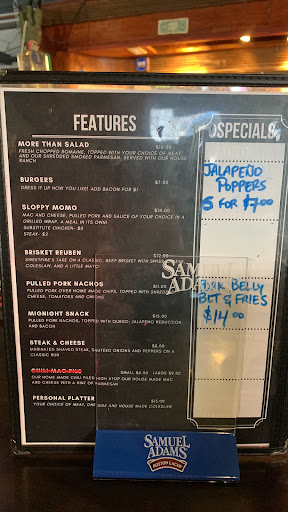 FEATURES
OSPECIALS
MORE THAN SALAD $10.00
FRESH CHOPPED ROMAINE, TOPPED WITH YOUR CHOICE OF MEAT,
AND OUR SHREDDED SMOKED PARMESAN, SERVED WITH OUR HOUSE
RANCH
BURGERS $7.00
DRESS IT UP HOW YOU LIKE! ADD BACON FOR $1
SLOPPY MOMO $14.00
MAC AND CHEESE, PULLED PORK AND SAUCE OF YOUR CHOICE IN A
GRILLED WRAP, A MEAL IN ITS OWN!
SUBSTITUTE CHICKEN-
STEAK- $3
BRISKET REUBEN $12.00
SWEETFIRE'S TAKE ON A CLASSIC, BEEF BRISKET WITH
COLESLAW, AND A LITTLE MAYO
PULLED PORK NACHOS
PULLED PORK OVER HOME MADE CHIPS, TOPPED WITH SHREDDED
CHEESE, TOMATOES AND ONIONS
MIGNIGHT SNACK $15.00
PULLED PORK NACHOS, TOPPED WITH QUESO, JALAPENO REDUCTION
AND BACON
STEAK & CHEESE $8.00
MARINATED SHAVED STEAK, SAUTEED ONIONS AND PEPPERS ON A
CLASSIC BUN
CHILI MAC PILE SMALL $4.00 LARGE $9.00
OUR HOME MADE CHILI PILED HIGH ATOP OUR HOUSE MADE MAC
AND CHEESE WITH A HINT OF PARMESAN
PERSONAL PLATTER $13.00
YOUR CHOICE OF MEAT, ONE SIDE AND HOUSE MADE COLESLAW
JALAPEÑO
POPPERS
5 FOR $7.00
PORK BELLY
BLT & FRIES
$14.00
SAMUEL
ADAMS
SAMUEL
ADAMS
BOSTON LAGER